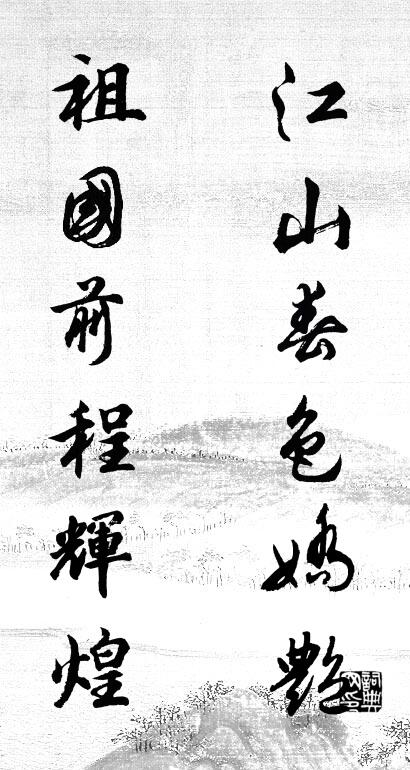 江山春色嬌艷
祖國前程輝煌